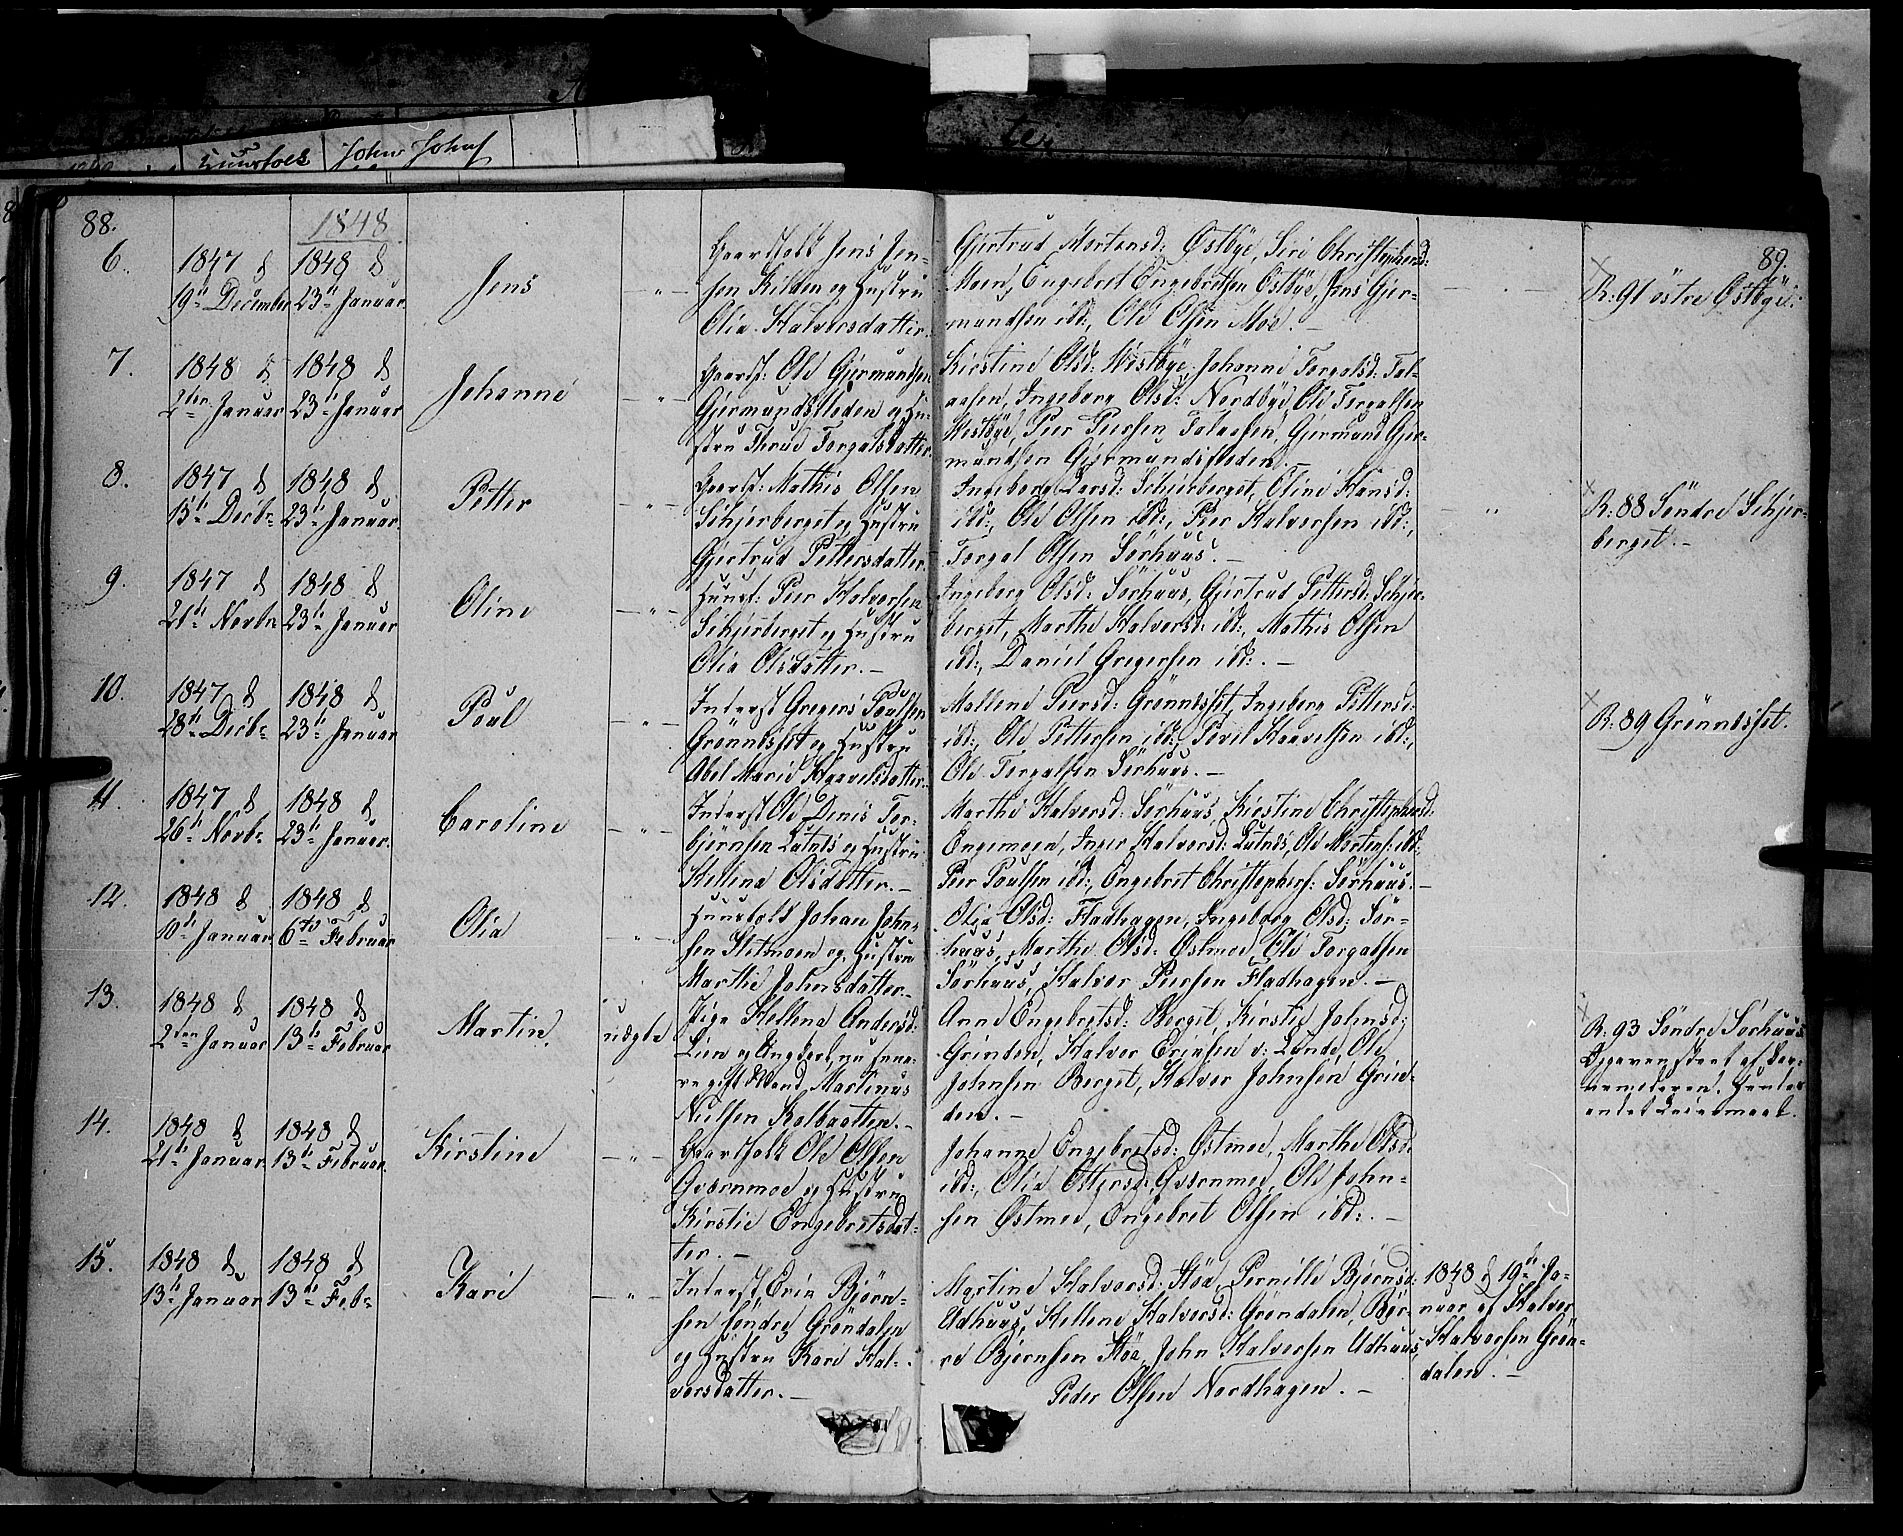 88.
1848
89.
6.
1847 d
19de December
1848 d
23de Januar
Jens
Gaardfolk Jens Jen-
sen Kilden og Hustru
Olia Halvorsdatter
Gjertrud Mortensd: Østbye, Siri Christophersd:
Moen, Engebret Engebretsen Østbye, Jens Gjer-
mundsen ibd:, Ole Olsen Moe. –
R: 91 östre Østbye.
7.
1848 d
2den Januar
1848 d
23de Januar
Johanne
Gaardf: Ole Gjermundsen
Gjermundsfloden og Hu-
stru Thrud Torgalsdatter
Kirstine Olsd: Westbye, Johanne Torgalsd: Fal-
aasen, Ingeborg Olsd: Nordbye, Ole Torgalsen
Westbye, Peer Peersen Falaasen, Gjermund Gjer-
mundsen Gjermundsfloden. –
8.
1847 d
15de Decbr
1848 d
23de Januar
Petter
Gaardf: Mathis Olsen
Schjerberget og Hustru
Gjertrud Pettersdatter
Ingeborg Larsd: Schjerberget, Oline Hansd:
ibd:, Ole Olsen ibd:, Peer Halvorsen ibd:,
Torgal Olsen Sørhuus. –
R: 88 Søndre Schjer-
berget. –
9.
1847 d
21de Novbr
1848 d
23de Januar
Oline
Huusf: Peer Halvorsen
Schjerberget og Hustru
Olia Olsdatter. –
Ingeborg Olsd: Sørhuus, Gjertrud Pettersd: Schjer-
berget, Marthe Halvorsd: ibd:, Mathis Olsen
ibd:, Daniel Gregersen ibd:. –
10.
1847 d
28de Decbr
1848 d
23de Januar
Poul
Inderst Gregers Poulsen
Grønnesset og Hustru
Abel Marie Haavelsdatter
Mallene Peersd: Grønnesset, Ingeborg Pettersd:
ibd:, Ole Pettersen ibd:, Povel Haavelsen ibd:,
Ole Torgalsen Sørhuus. –
R: 89 Grønnesset.
11.
1847 d
26de Novbr
1848 d
23de Januar
Caroline
Inderst Ole Denis Tor-
bjørnsen Lutnes og Hustru
Hellena Olsdatter. –
Marthe Halvorsd: Sørhuus, Kirstine Christophersd:
Engemoen, Inger Halvorsd: Lutnes, Ole Mortens: ibd:
Peer Poulsen ibd:, Engebret Christophers: Sørhuus. –
12.
1848 d
10de Januar
1848 d
6te Februar
Olia
Huusfolk Johan John-
sen Sletmoen og Hustru
Marthe Johnsdatter. –
Olia Olsd: Fladhagen, Ingeborg Olsd: Sør-
huus, Marthe Olsd: Østmoe, Ole Torgalsen
Sørhuus, Halvor Peersen Fladhagen. –
13.
1848 d
2den Januar
1848 d
13de Februar
Martin
uægte
Pige Hellena Andersd:
Lien og Ungkarl, nu sene-
re gift Mand Martinus
Nielsen Kolbaatten. –
Anne Engebretsd: Berget, Kirstie Johnsd:
Grinden, Halvor Erixsen v: Lunde, Ole
Johnsen Berget, Halvor Johnsen Grin-
den. –
R: 93 Søndre Sørhuus
14.
1848 d
21de Januar
1848 d
13de Februar
Kirstine
Gaardfolk Ole Olsen
Qvernmoe og Hustru
Kirstie Engebretsdat-
ter. –
Johanne Engebretsd: Østmoe, Marthe Olsd:
ibd:, Olia Ottersd: Qvernmoe, Ole John-
sen Østmoe, Engebret Olsen ibd:. –
15.
1848 d
13de Januar
1848 d
13de Febr
Kari
Inderst Erix Bjørn-
sen søndre Grøndalen
og Hustru Kari Hal-
vorsdatter. –
Martine Halvorsd: Støa, Pernille Bjørnsd:
Udhuus, Hellene Halvorsd: Grøndalen, Bør-
re Bjørnsen Støa, John Halvorsen Udhuus,
Peder Olsen Nordhagen. –
1848 d 19de Ja-
nuar af Halvor
Halvorsen Grøn-
dalen. –